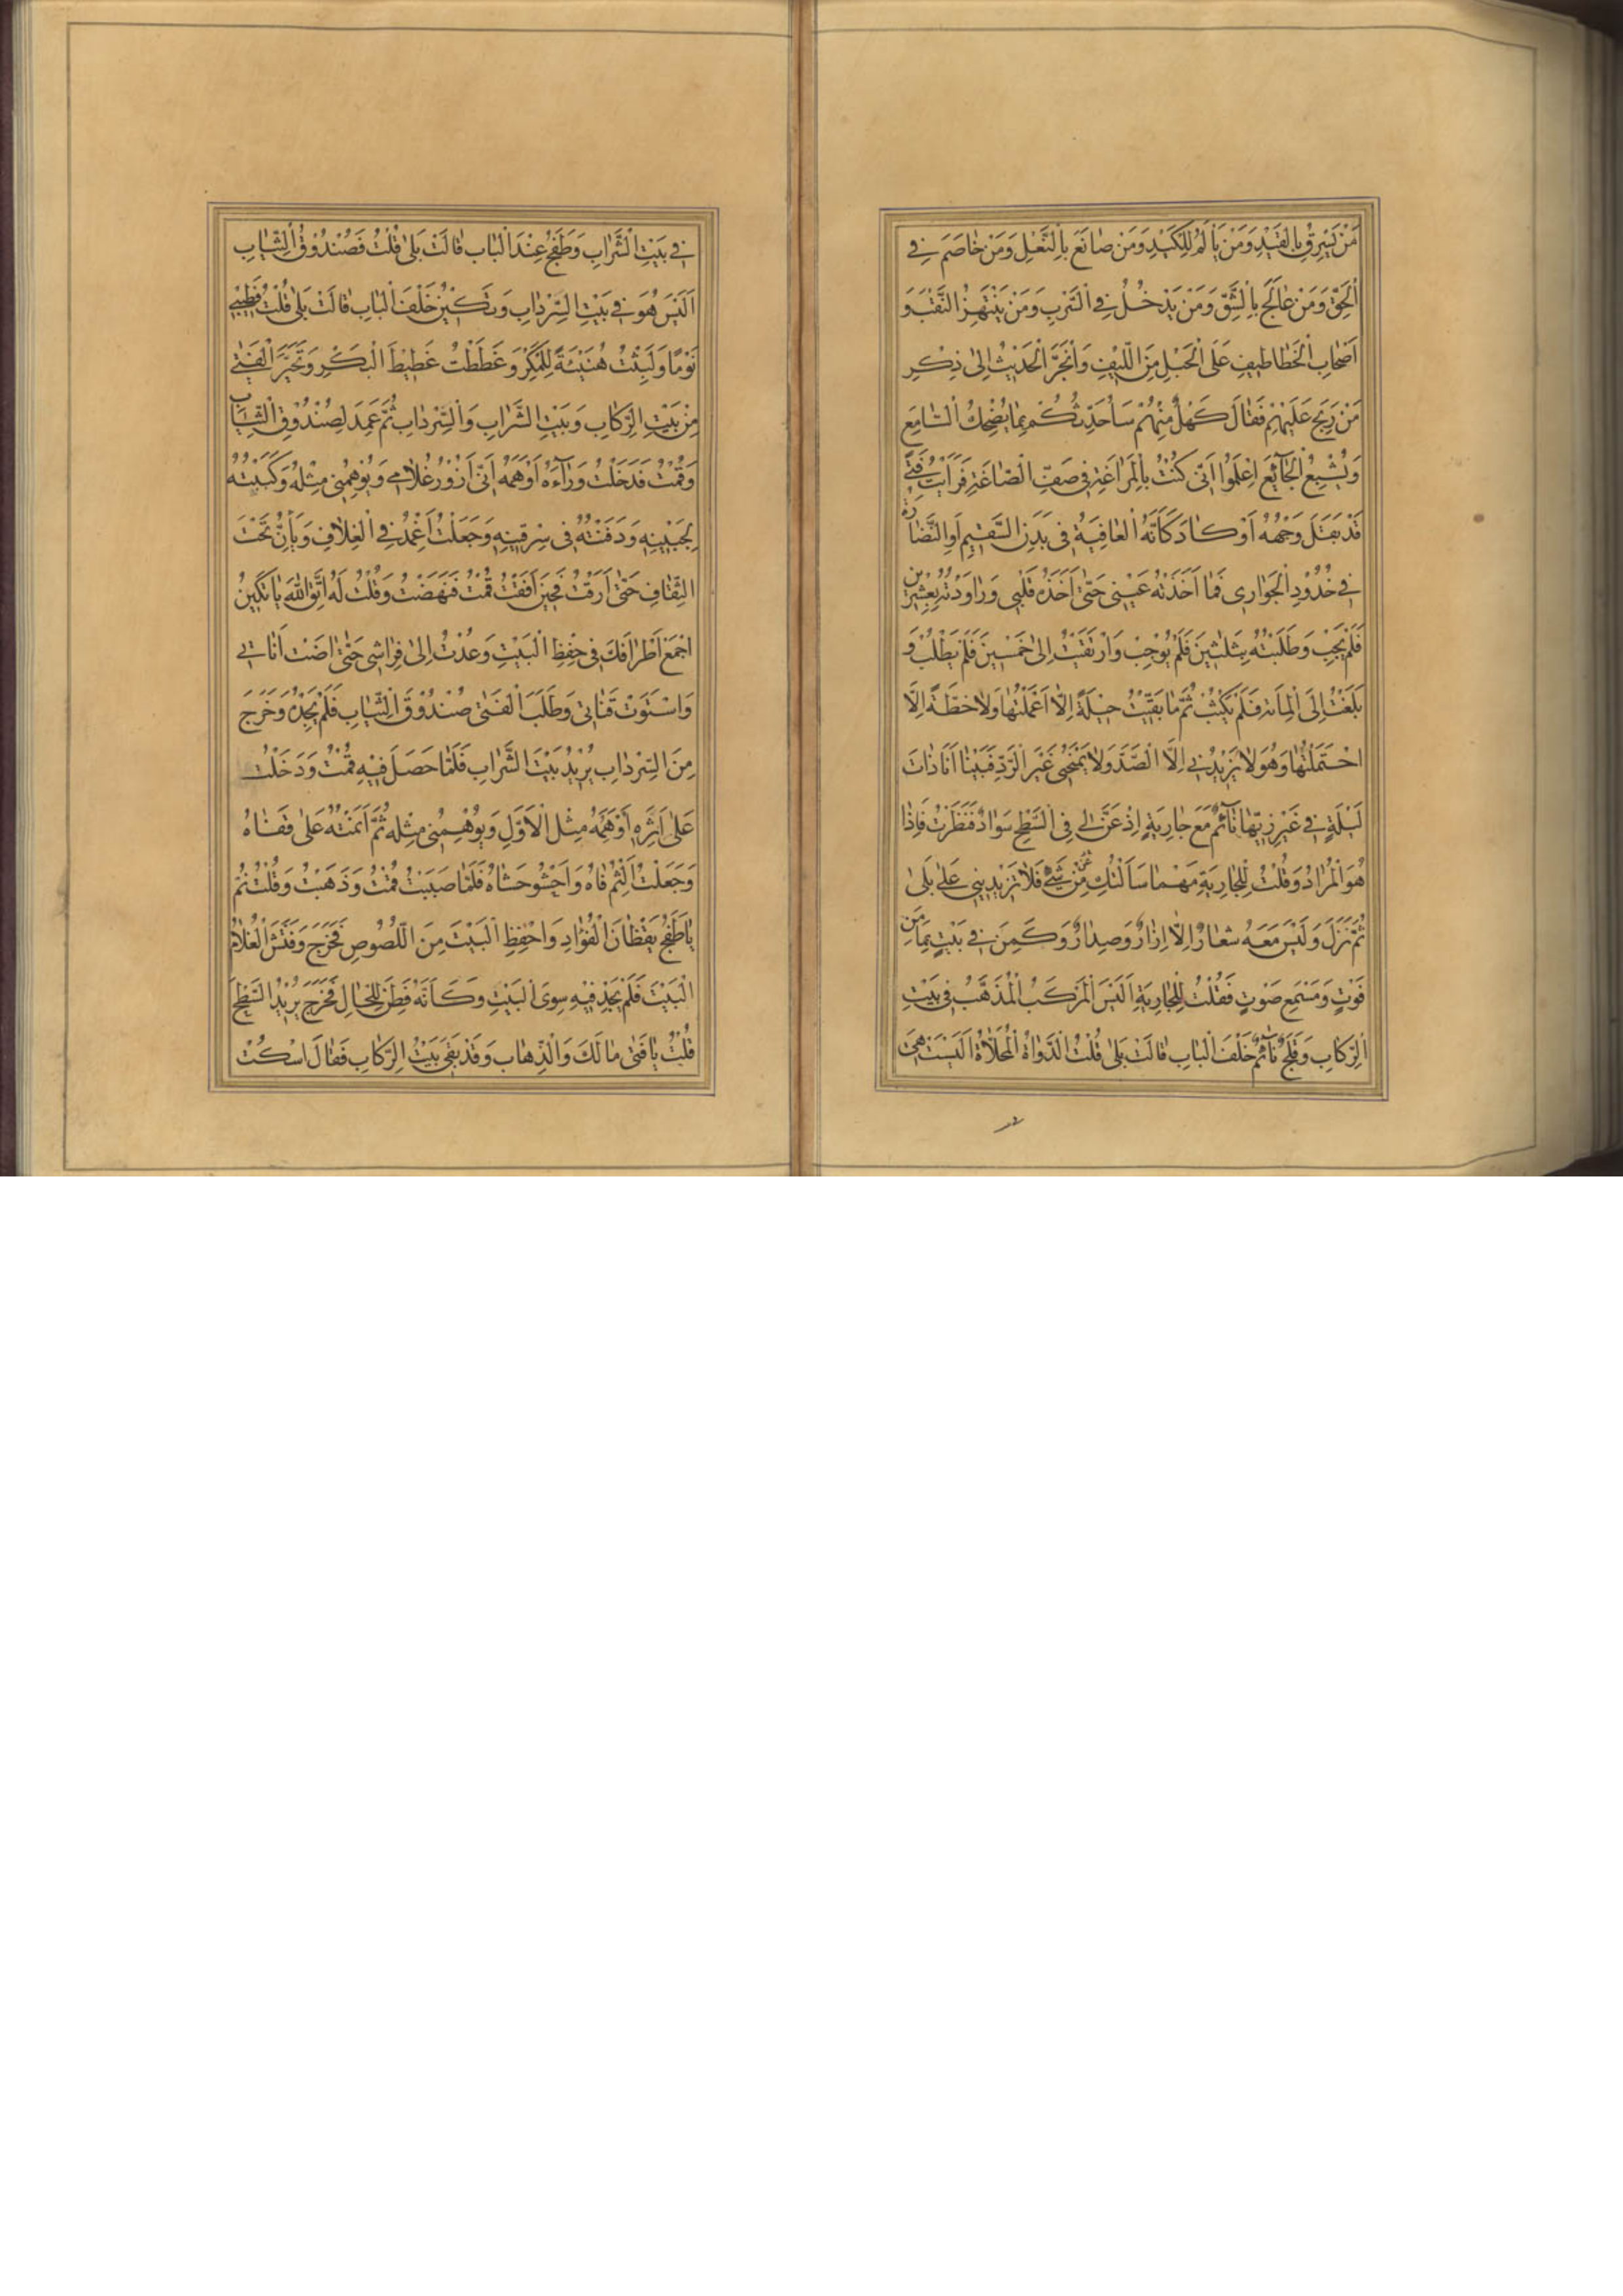 مَنْ يَسْرِقُ بِالْقَيْدِ وَمَنْ يَأْلَمُ لِلْكَيْدِ وَمَنْ صَانَعَ بِالنَّعْلِ وَمَنْ خَاصَمَ فِي
الْحَقِّ وَمَنْ عَالَجَ بِالشَّقِّ وَمَنْ يَدْخُلُ فِي السَّرَبِ وَمَنْ يَنْتَهِزُ النَّقْبَ وَ
اَصْحَابِ الْخَطَاطِيفِ عَلَى الْحَبْلِ مِنَ اللِّيْفِ وَانْجَرَّ الْحَدِيْثُ اِلٰى ذِكْرِ
مَنْ رَبِحَ عَلَيْهِمْ فَقَالَ كَهْلٌ مِنْهُمْ سَاُحَدِّثُكُمْ بِمَا يُضْحِكُ السَّامِعَ
وَيُشْبِعُ الْجَآئِعَ اِعْلَمُوْا اَنّى كُنْتُ بِالْمَرَاغَةِ فى صَفِّ الصَّاغَةِ فَرَاَيْتُ فَتًى
قَدْ بَقَلَ وَجْهُهُ اَوْ كَادَ كَاَنَّهُ الْعَافِيَةُ فى بَدَنِ السَّقِيْمِ اَوِ النَّضَارَةُ
فِي خُدُوْدِ الْجَوَارِى فَمَا اَخَذَتْهُ عَيْنِى حَتّٰى اَخَذَهُ قَلْبِى وَرَاوَدْتُهُ بِعِشْرِيْنَ
فَلَمْ يُجِبْ وَطَلَبْتُهُ بِثَلٰثِيْنَ فَلَمْ يُوْجِبْ وَارْتَقَيْتُ اِلٰى خَمْسِيْنَ فَلَمْ يَطْلُبْ وَ
بَلَغْتُ اِلَى الْمِائَةِ فَلَمْ يَكْتَرِثْ ثُمَّ مَا بَقَّيْتُ حِيْلَةً اِلَّا اَعْمَلْتُهَا وَلَا خطَّةً اِلَّا
احْتَمَلْتُهَا وَهُوَ لَا يَزِيْدُنِي اِلَّا الصَّدَّ وَلَا يَمْنَحُنِى غَيْرَ الرَّدِّ فَبَيْنَا اَنَا ذَاتَ
لَيْلَةٍ فِي غَيْرِ زِيِّهَا نَآئِمٌ مَعَ جَارِيَةٍ اِذْ عَنَّ لِي فِى السَّطْحِ سَوَادٌ فَنَظَرْتُ فَاِذَا
هُوَ الْمُرَادُ وَقُلْتُ لِلْجَارِيَةِ مَهْمَا سَاَلْتُكِ عَنْ شَيْءٍ فَلَا تَزِيْدِيْنِي عَلٰى بَلٰى
ثُمَّ نَزَلَ وَلَيْسَ مَعَهُ شِعَارٌ اِلَّا اِزَارٌ وَصِدَارٌ وَكَمِنَ فِي بَيْتٍ بِمَاْمَنِ
فَوْتٍ وَمَسْمَعِ صَوْتٍ فَقُلْتُ لِلْجَارِيَةِ اَلَيْسَ الْمَرْكَبُ الْمُذَهَّبُ فِى بَيْتِ
الرِّكَابِ وَفَلَجٌ نَآئِمٌ خَلْفَ الْبَابِ قَالَتْ بَلٰى قُلْتُ الدَّوَاةُ الْمُحَلَّاةُ اَلَيْسَتْ هِيَ
فِي بَيْتِ الشَّرَابِ وَطَفَجٌ عِنْدَ الْبَابِ قَالَتْ بَلٰى قُلْتُ فَصُنْدُوْقُ الثِّيَابِ
اَلَيْسَ هُوَ فِي بَيْتِ السِّرْدَابِ وَتَكِيْنُ خَلْفَ الْبَابِ قَالَتْ بَلٰى قُلْتُ
نَوْمًا وَلَبِثْتُ هُنَيْئَةً لِلْمَكْرِ وَغَطَطْتُ غَطِيْطَ الْبَكْرِ وَتَحَيَّرَ الْفَتٰى
مِنْ بَيْتِ الرِّكَابِ وَبَيْتِ الشَّرَابِ وَالسِّرْدَابِ ثُمَّ عَمَدَ لِصُنْدُوْقِ الثِّيَابِ
وَقُمْتُ فَدَخَلْتُ وَرَآءَهُ اُوْهِمُهُ اَنّى اَزُوْرُ غُلَامِي وَيُوْهِمُنِى مِثْلَهُ وَكَبَبْتُهُ
لِجَبِيْنِهِ وَدَفَنْتُهُ فى سِرْقِيْنِهِ وَجَعَلْتُ اُغْمِدُ فِي الْغِلَافِ وَيَاِنُّ تَحْتَ
الثِّقَافِ حَتّٰى اَرَقْتُ فَحِيْنَ اَفَقْتُ قُمْتُ فَنَهَضْتُ وَقُلْتُ لَهُ اتَّقِ اللّٰهَ يَا تَكِيْنُ
اجْمَعْ اَطْرَافَكَ فى حِفْظِ الْبَيْتِ وَعُدْتُ اِلٰى فِرَاشِى حَتّٰى اضَتْ اَنَاتِي
وَاسْتَوَتْ قَنَاتِي وَطَلَبَ الْفَتٰى صُنْدُوْقَ الثِّيَابِ فَلَمْ يَجِدْهُ وَخَرَجَ
مِنَ السِّرْدَابِ يُرِيْدُ بَيْتَ الشَّرَابِ فَلَمَّا حَصَلَ فِيْهِ قُمْتُ وَدَخَلْتُ
عَلٰى اَثَرِهِ اُوْهِمُهُ مِثْلَ الْاَوَّلِ وَيُوْهِمُنِى مِثْلَهُ ثُمَّ اَنَمْتُهُ عَلٰى قَفَاهُ
وَجَعَلْتُ اَلْثِمُ فَاهُ وَاَحْشُو حَشَاهُ فَلَمَّا صَبَبْتُ قُمْتُ وَذَهَبْتُ وَقُلْتُ نَمْ
يَا طَفَجُ يَقْظَانَ الْفُؤَادِ وَاحْفِظِ الْبَيْتَ مِنَ اللُّصُوصِ فَخَرَجَ وَفَتَّشَ الْغُلَامُ
الْبَيْتَ فَلَمْ يَجِدْ فِيْهِ سِوَى الْبَيْتِ وَكَاَنَّهُ فَطِنَ لِلْحَالِ فَخَرَجَ يُرِيْدُ السَّطْحَ
قُلْتُ يَا فَتٰى مَا لَكَ وَالذِّهَاب وَقَدْ بَقِيَ بَيْتُ الرِّكَابِ فَقَالَ اسْكُتْ